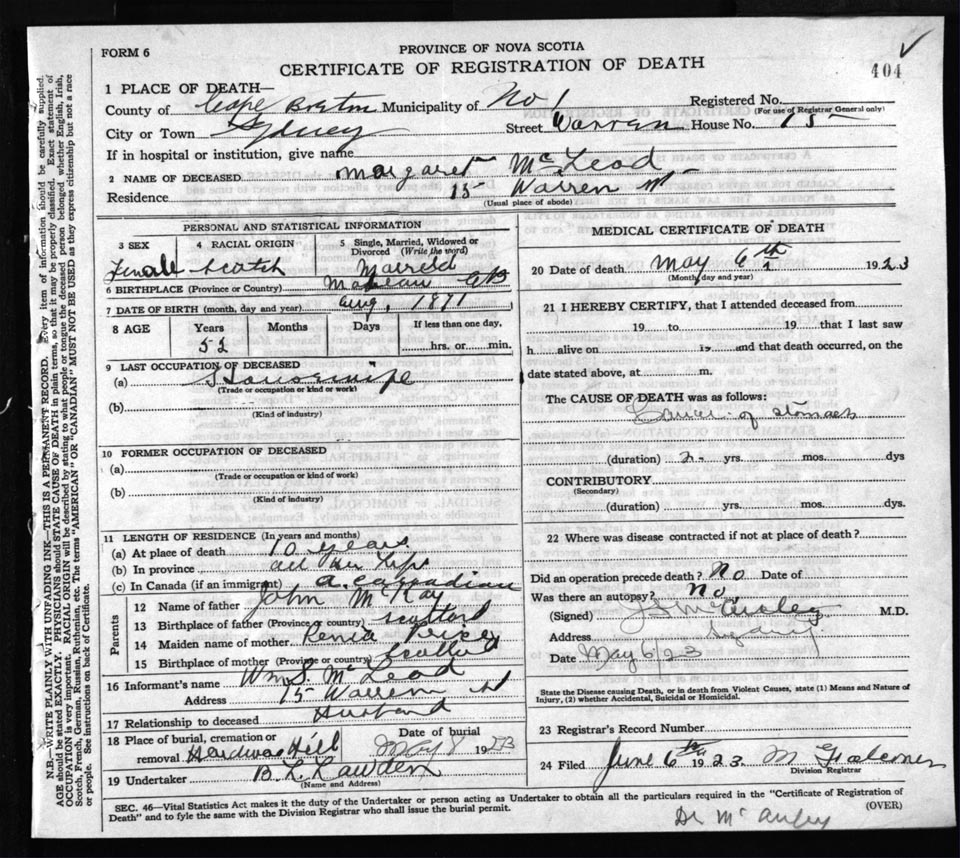 FORM 6
PROVINCE OF NOVA SCOTIA
CERTIFICATE OF REGISTRATION OF DEATH
404
1 PLACE OF DEATH—
County of Cape Breton Municipality of No 1 Registered No.
(For use of Registrar General only)
City or Town Sydney Street Warren House No. 15
If in hospital or institution, give name
2 NAME OF DECEASED Margaret McLeod
Residence 15 Warren St
(Usual place of abode)
PERSONAL AND STATISTICAL INFORMATION
3 SEX 4 RACIAL ORIGIN 5 Single, Married, Widowed or Divorced (Write the word)
Female Scotch Married
6 BIRTHPLACE (Province or Country) CB
7 DATE OF BIRTH (month, day and year) Aug, 1871
8 AGE Years Months Days If less than one day,
52 hrs. or min.
9 LAST OCCUPATION OF DECEASED
(a) Housewife
(Trade or occupation or kind of work)
(b)
(Kind of industry)
10 FORMER OCCUPATION OF DECEASED
(a)
(Trade or occupation or kind of work)
(b)
(Kind of industry)
11 LENGTH OF RESIDENCE (In years and months)
(a) At place of death 10 years
(b) In province all her life
(c) In Canada (if an immigrant) a canadian
Parents
12 Name of father John McKay
13 Birthplace of father (Province or country) Scotland
14 Maiden name of mother
15 Birthplace of mother (Province or country) Scotland
16 Informant's name Wm S. McLeod
Address 15 Warren St
17 Relationship to deceased Husband
18 Place of burial, cremation or removal Hardwood Hill Date of burial May 8 1923
19 Undertaker
(Name and Address)
MEDICAL CERTIFICATE OF DEATH
20 Date of death May 6th 1923
(Month, day and year)
21 I HEREBY CERTIFY, that I attended deceased from
19 to 19 that I last saw
h alive on 19 and that death occurred, on the
date stated above, at m.
The CAUSE OF DEATH was as follows:
Cancer of stomach
(duration) 2 yrs. mos. dys
CONTRIBUTORY
(Secondary)
(duration) yrs. mos. dys.
22 Where was disease contracted if not at place of death?
Did an operation precede death? No Date of
Was there an autopsy? No.
(Signed) M.D.
Address Sydney
Date May 6/23
State the Disease causing Death, or in death from Violent Causes, state (1) Means and Nature of Injury, (2) whether Accidental, Suicidal or Homicidal.
23 Registrar's Record Number
24 Filed June 6th 1923
Division Registrar
SEC. 46—Vital Statistics Act makes it the duty of the Undertaker or person acting as Undertaker to obtain all the particulars required in the "Certificate of Registration of
Death" and to fyle the same with the Division Registrar who shall issue the burial permit.
(OVER)
N.B.—WRITE PLAINLY WITH UNFADING INK—THIS IS A PERMANENT RECORD. Every item of information should be carefully supplied.
AGE should be stated EXACTLY. PHYSICIANS should STATE CAUSE OF DEATH in plain terms, so that it may be properly classified. Exact statement of
OCCUPATION is very important. RACIAL ORIGIN will be described by stating to what people or tongue the deceased person belonged whether English, Irish,
Scotch, French, German, Russian, Ruthenian, etc. The terms "AMERICAN" OR "CANADIAN" MUST NOT BE USED as they express citizenship but not a race
or people. See instructions on back of Certificate.